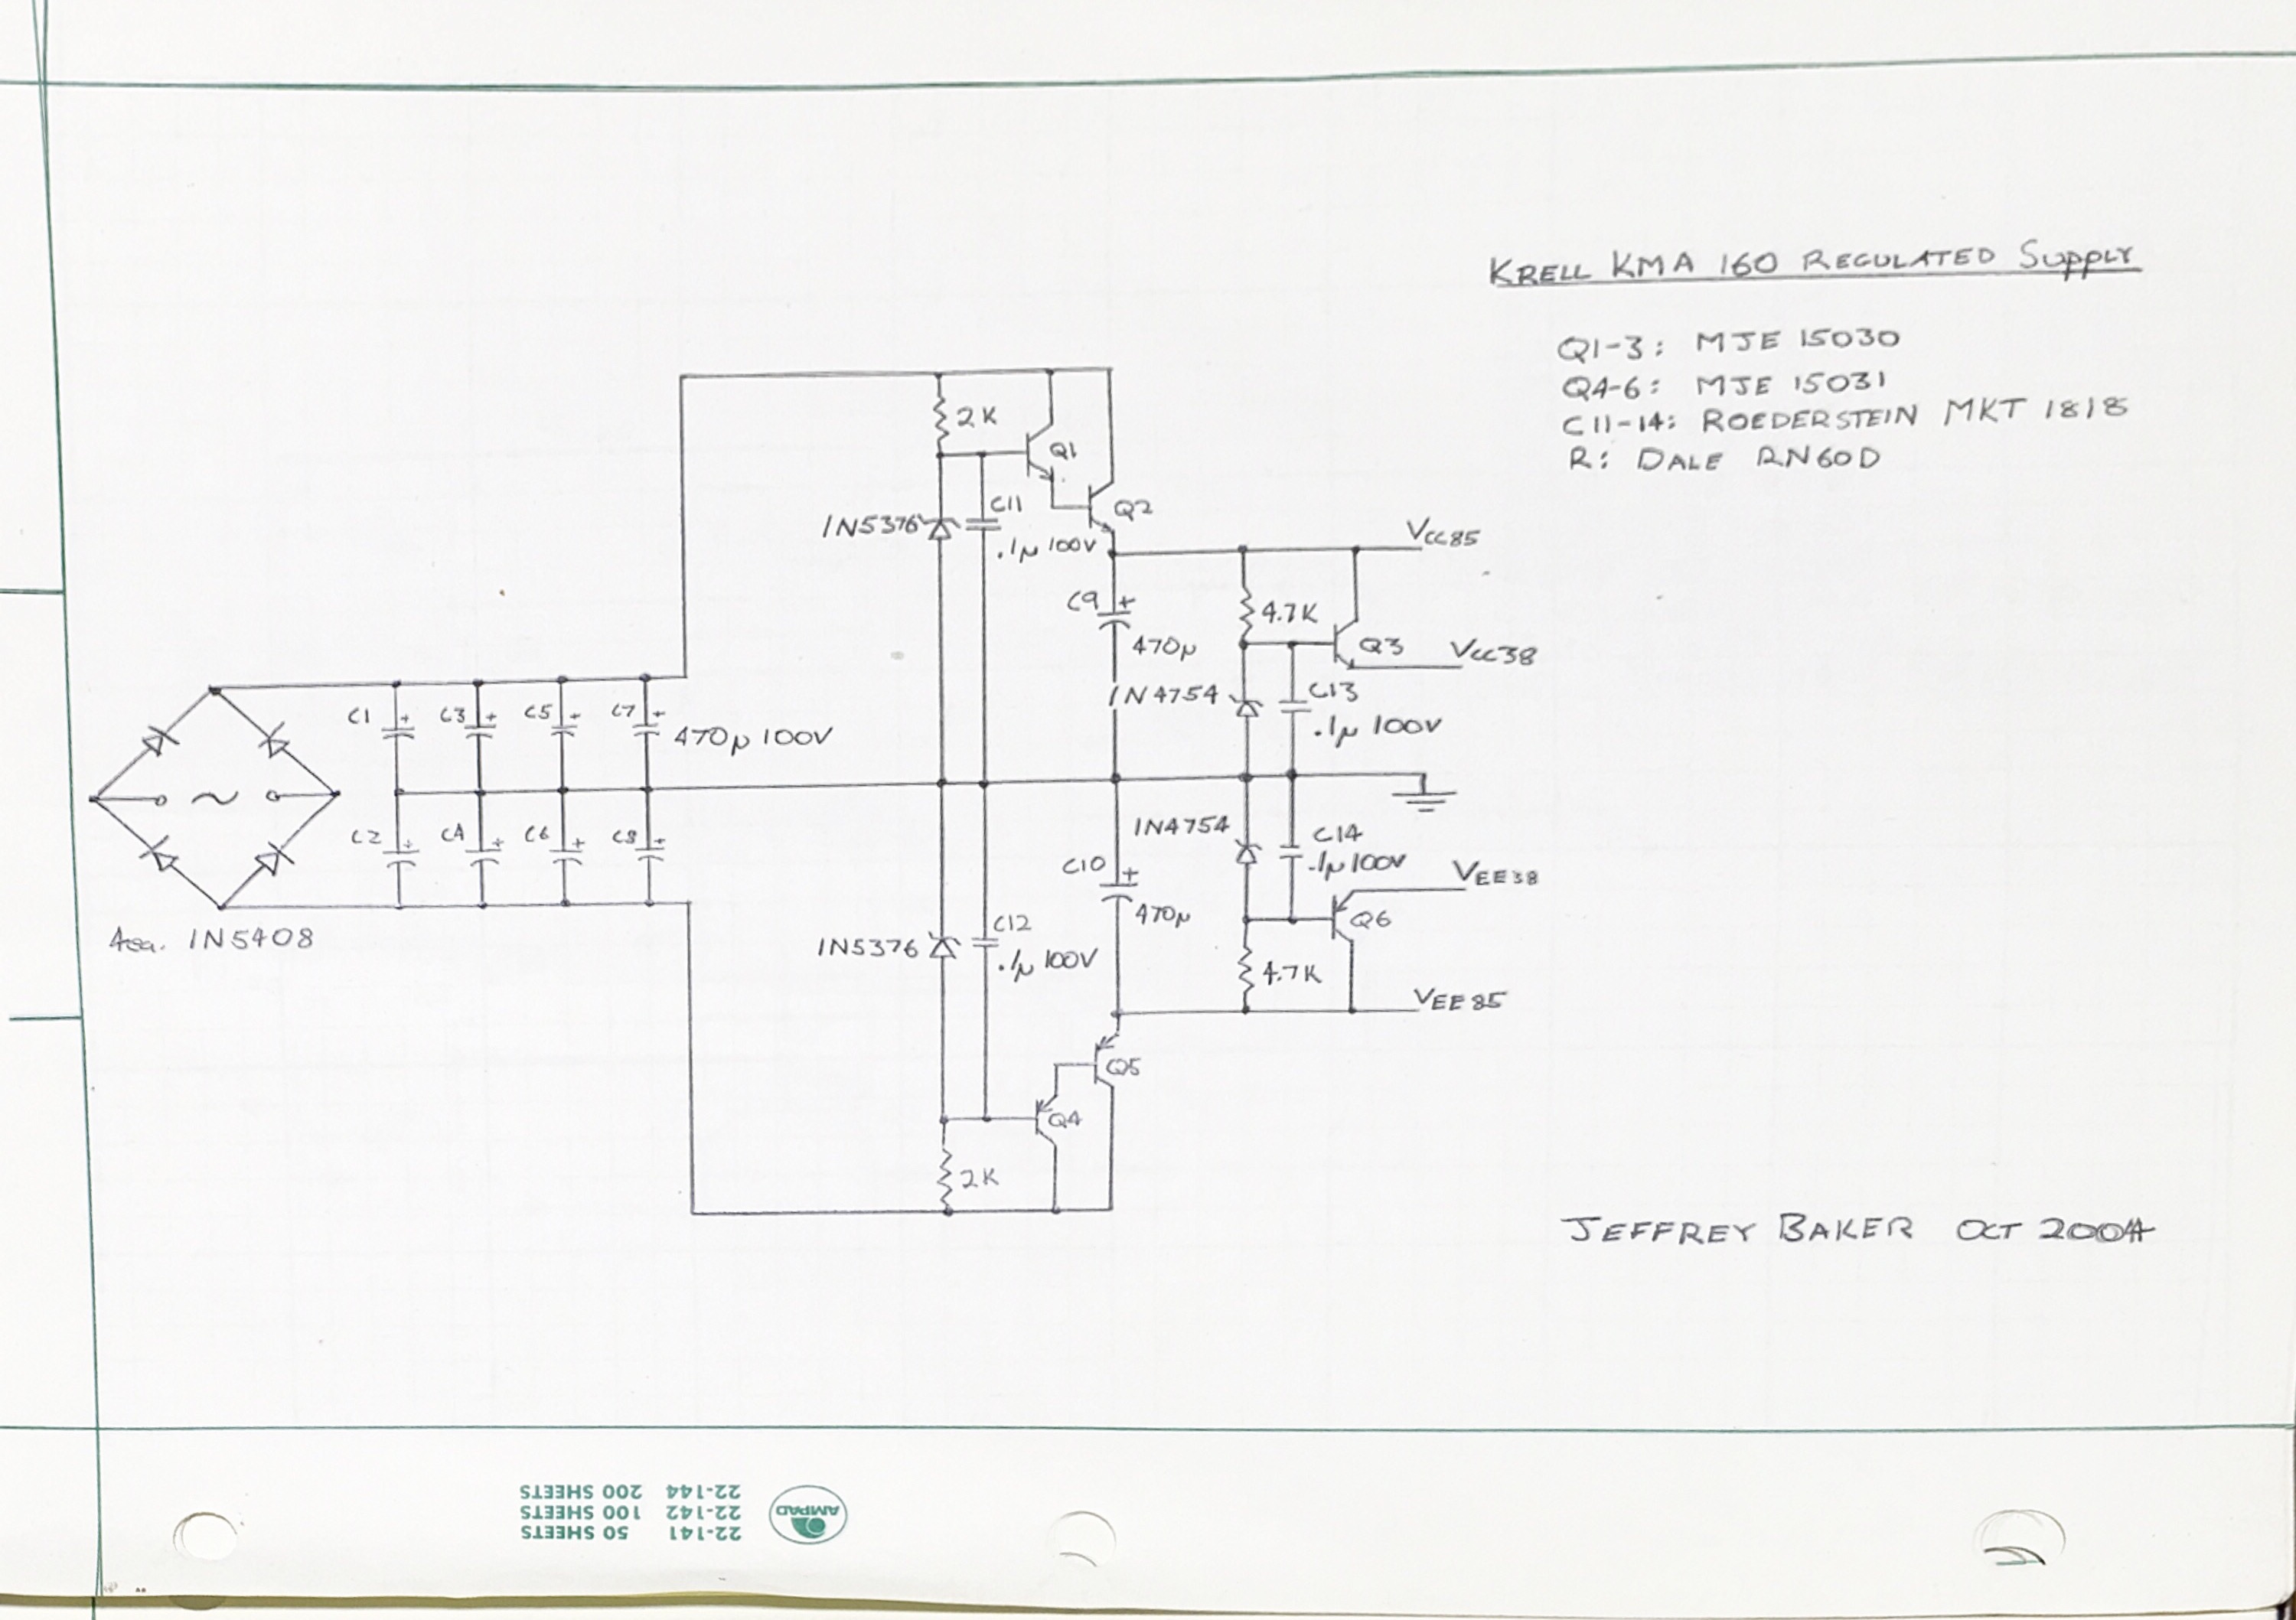 KRELL KMA 160 REGULATED SUPPLY
Q1-3: MJE 15030
Q4-6: MJE 15031
C11-14: ROEDERSTEIN MKT 1818
R: DALE RN60D
2K
Q1
C11
Q2
1N5376
.1µ 100V
VCC85
C9 +
4.7K
470µ
Q3
VCC38
1N4754
C13
.1µ 100V
C1 +
C3 +
C5 +
C7 +
470µ 100V
~
C2 +
C4 +
C6 +
C8 +
1N4754
C14
.1µ 100V
C10 +
VEE38
470µ
Q6
4ea. 1N5408
1N5376
C12
.1µ 100V
4.7K
VEE85
Q5
Q4
2K
JEFFREY BAKER OCT 2004
22-141 50 SHEETS
22-142 100 SHEETS
22-144 200 SHEETS
AMPAD